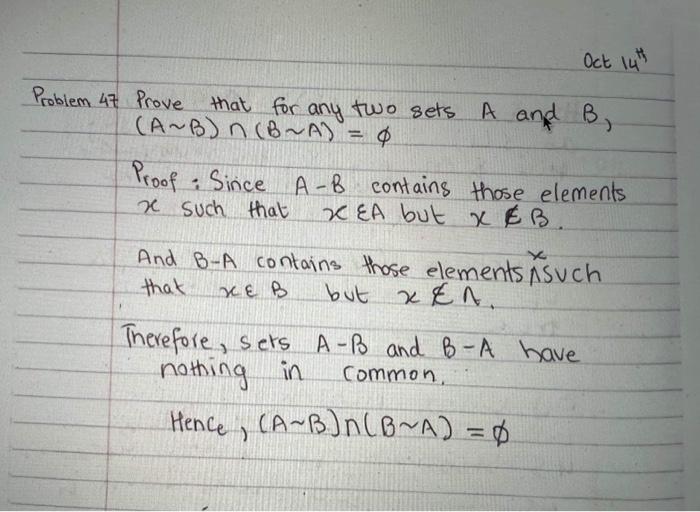 Oct 14th
Problem 47 Prove that for any two sets A and B,
(A~B) ∩ (B~A) = ∅
Proof : Since A-B contains those elements
x such that x ∈ A but x ∉ B.
x
And B-A contains those elements ∧ such
that x ∈ B but x ∉ A.
Therefore, sets A-B and B-A have
nothing in common.
Hence, (A~B)∩(B~A) = ∅